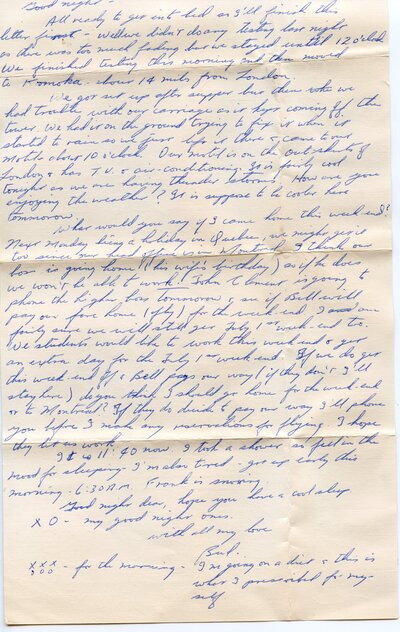 Good night -
All ready to get into bed as I'll finish this
letter first - Well we didn't do any testing last night
as there was too much fading but we stayed until 12 o'clock
We finished testing this morning and then moved
to Komoka about 14 miles from London.
We got set up after supper but then we
had trouble with our carriage as it kept coming off the
tower. We had it on the ground trying to fix it when it
started to rain so we just left it there & came to our
motel about 10 o'clock. Our motel is on the outskirts of
London & has T.V. & air-conditioning. It is fairly cool
tonight as we are having thunder storms. How are you
enjoying the weather? It is suppose to be cooler here
tommorow.
What would you say if I came home this week-end?
Next Monday being a holiday in Quebec, we might get it
too since our head office is in Montreal. I think our
boss is going home (his wife's birthday) & if he does
we won't be able to work. John Clement is going to
phone the higher boss tommorow & see if Bell will
pay our fare home (fly) for the week-end. I am
fairly sure we will still get July 1st week-end too.
We students would like to work this week-end & get
an extra day for the July 1st week-end. If we do get
this week-end off & Bell pays our way (if they don't I'll
stay here) do you think I should go home for the week-end
or to Montreal? If they do decide to pay our way I'll phone
you before I make any reservations for flying. I hope
they let us work.
It is 11:40 now. I took a shower so feel in the
mood for sleeping. I'm also tired - got up early this
morning - 6:30 A.M. Frank is snoring.
Good night dear, hope you have a cool sleep
X O - my good night ones.
with all my love
Bill..
x x x
o o o - for the morning -
I'm going on a diet & this is
what I prescribed for my-
self